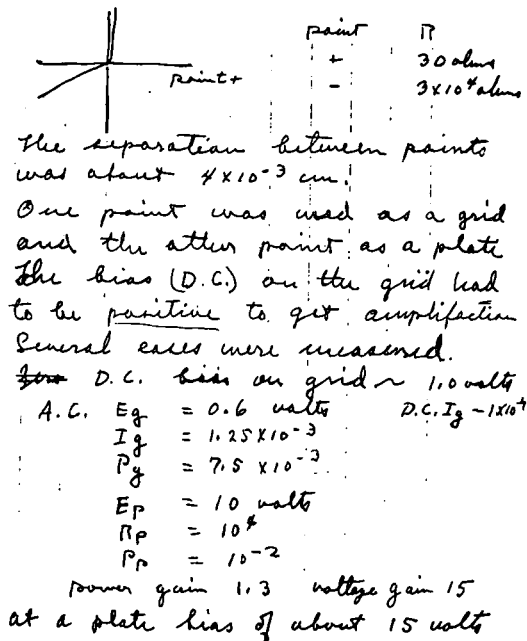 point R
+ 30 ohms
point+ - 3x10⁴ ohms
The separation between points
was about 4x10⁻³ cm.
One point was used as a grid
and the other point as a plate
The bias (D.C.) on the grid had
to be positive to get amplifaction
Several cases were measured.
D.C. bias on grid ~ 1.0 volts
A.C. Eg = 0.6 volts D.C. Ig ~ 1x10⁻⁴
Ig = 1.25x10⁻³
Pg = 7.5 x10⁻³
Ep = 10 volts
Rp = 10⁴
Pp = 10⁻²
power gain 1.3 voltage gain 15
at a plate bias of about 15 volts